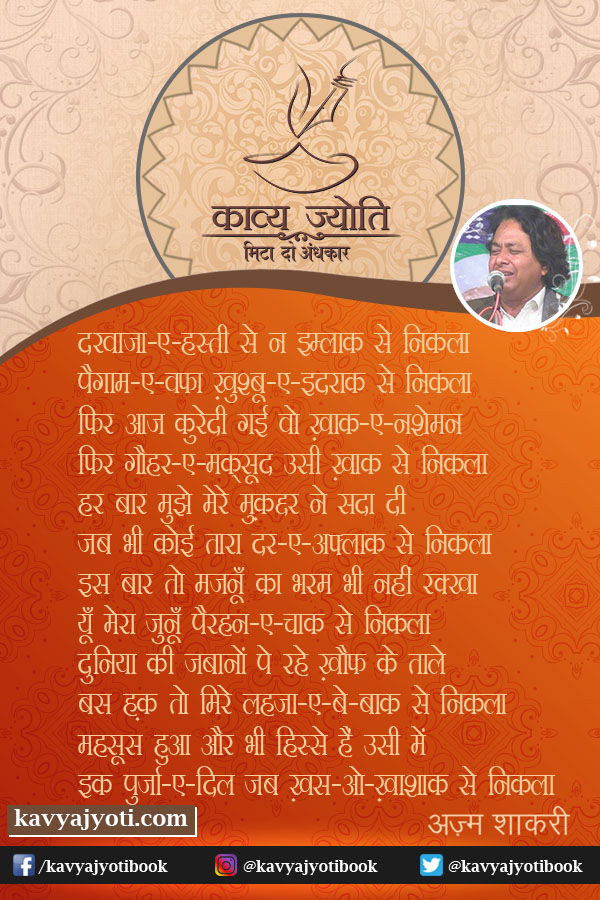 काव्य ज्योति
मिटा दो अंधकार
दरवाजा-ए-हस्ती से न इम्लाक से निकला
पैगाम-ए-वफ़ा ख़ुश्बू-ए-इदराक से निकला
फिर आज कुरेदी गई वो ख़ाक-ए-नशेमन
फिर गौहर-ए-मक़्सूद उसी ख़ाक से निकला
हर बार मुझे मेरे मुक़द्दर ने सदा दी
जब भी कोई तारा दर-ए-अफ़्लाक से निकला
इस बार तो मजनूँ का भरम भी नहीं रक्खा
यूँ मेरा जुनूँ पैरहन-ए-चाक से निकला
दुनिया की जबानों पे रहे ख़ौफ के ताले
बस हक़ तो मिरे लहजा-ए-बे-बाक से निकला
महसूस हुआ और भी हिस्से हैं उसी में
इक पुर्जा-ए-दिल जब ख़स-ओ-ख़ाशाक से निकला
kavyajyoti.com
अज़्म शाकरी
/kavyajyotibook @kavyajyotibook @kavyajyotibook